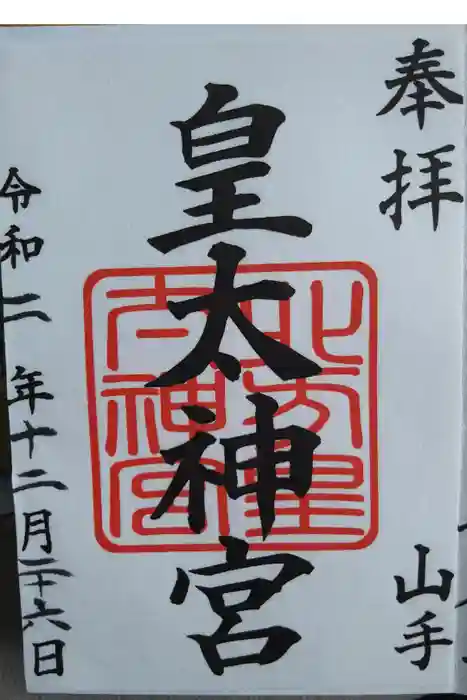 奉拝
山手
皇太神宮
令和二年十二月二十六日
北方皇
太神宮